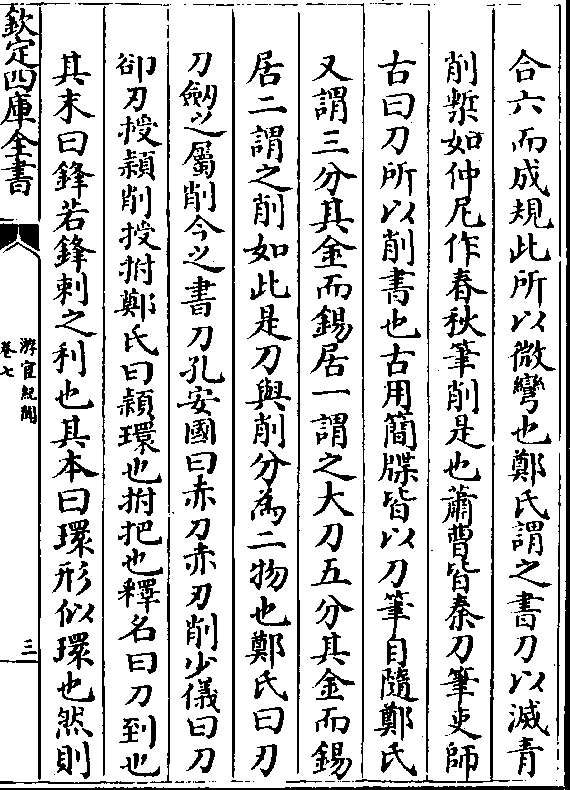 合六而成規此所以微彎也鄭氏謂之書刀以滅青
削槧如仲尼作春秋筆削是也蕭曹皆秦刀筆吏師
古曰刀所以削書也古用簡牒皆以刀筆自隨鄭氏
又謂三分其金而錫居一謂之大刀五分其金而錫
居二謂之削如此是刀與削分為二物也鄭氏曰刃
刀劒之屬削今之書刀孔安國曰赤刀赤刃削少儀曰刀
卻刃授穎削授拊鄭氏曰穎環也拊把也釋名曰刀到也
其末曰鋒若鋒刺之利也其本曰環形似環也然則
欽定四庫全書
游宦紀聞
卷七
三